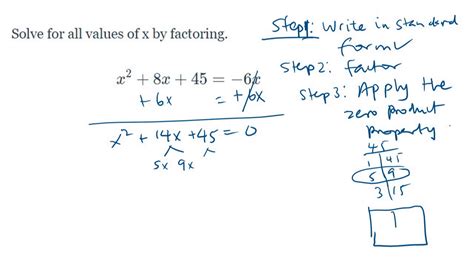 Solve for all values of x by factoring.
Step1: Write in standard
form
Step 2: factor
Step 3: Apply the
zero product
property
x² + 8x + 45 = −6x
+ 6x = + 6x
x² + 14x + 45 = 0
5x 9x
45
1 45
5 9
3 15
1